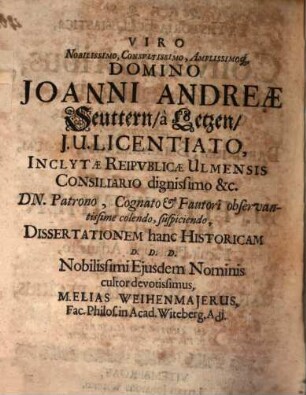 VIRO
NOBILISSIMO, CONSVLTISSIMO, AMPLISSIMOQ́;
DOMINO
JOANNI ANDREÆ
Seuttern/ à Letzen/
J.U. LICENTIATO,
INCLYTÆ REIPVBLICÆ ULMENSIS
CONSILIARIO dignissimo &c.
DN. Patrono, Cognato & Fautori observan-
tissime colendo, suspiciendo,
DISSERTATIONEM hanc HISTORICAM
D. D. D.
Nobilissimi Ejusdem Nominis
cultor devotissimus,
M. ELIAS WEIHENMAJERUS,
Fac. Philos. in Acad. Witeberg. Adj.